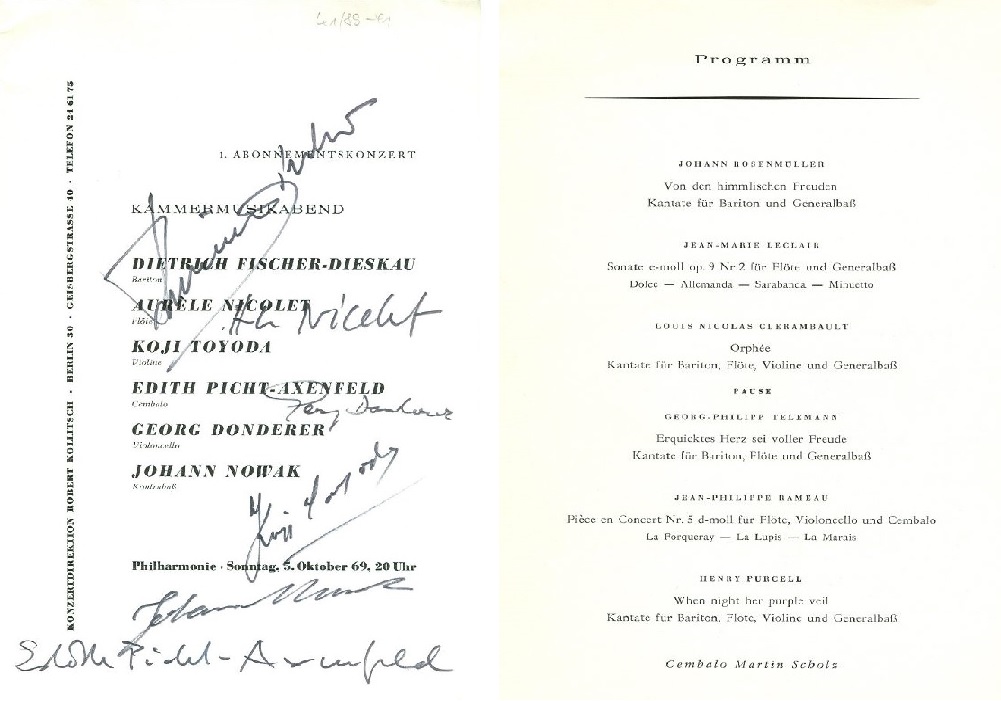 41/89-61
1. ABONNEMENTSKONZERT
KAMMERMUSIKABEND
DIETRICH FISCHER-DIESKAU
Bariton
AURÈLE NICOLET
Flöte
KOJI TOYODA
Violine
EDITH PICHT-AXENFELD
Cembalo
GEORG DONDERER
Violoncello
JOHANN NOWAK
Kontrabaß
Philharmonie · Sonntag, 5. Oktober 69, 20 Uhr
Nicolet
Georg Donderer
Koji Toyoda
Johann Nowak
Edith Picht-Axenfeld
KONZERTDIREKTION ROBERT KOLLITSCH · BERLIN 30 · GEISBERGSTRASSE 40 · TELEFON 24 61 75
Programm
JOHANN ROSENMÜLLER
Von den himmlischen Freuden
Kantate für Bariton und Generalbaß
JEAN-MARIE LECLAIR
Sonate e-moll op. 9 Nr 2 für Flöte und Generalbaß
Dolce — Allemanda — Sarabanda — Minuetto
LOUIS NICOLAS CLERAMBAULT
Orphée
Kantate für Bariton, Flöte, Violine und Generalbaß
PAUSE
GEORG-PHILIPP TELEMANN
Erquicktes Herz sei voller Freude
Kantate für Bariton, Flöte und Generalbaß
JEAN-PHILIPPE RAMEAU
Pièce en Concert Nr. 5 d-moll für Flöte, Violoncello und Cembalo
La Forqueray — La Lupis — La Marais
HENRY PURCELL
When night her purple veil
Kantate für Bariton, Flöte, Violine und Generalbaß
Cembalo Martin Scholz